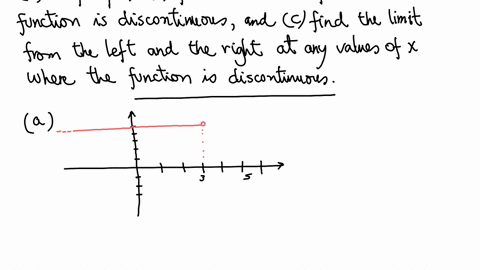 function is discontinuous, and (c) find the limit
from the left and the right at any values of x
where the function is discontinuous.
(a)
3 5